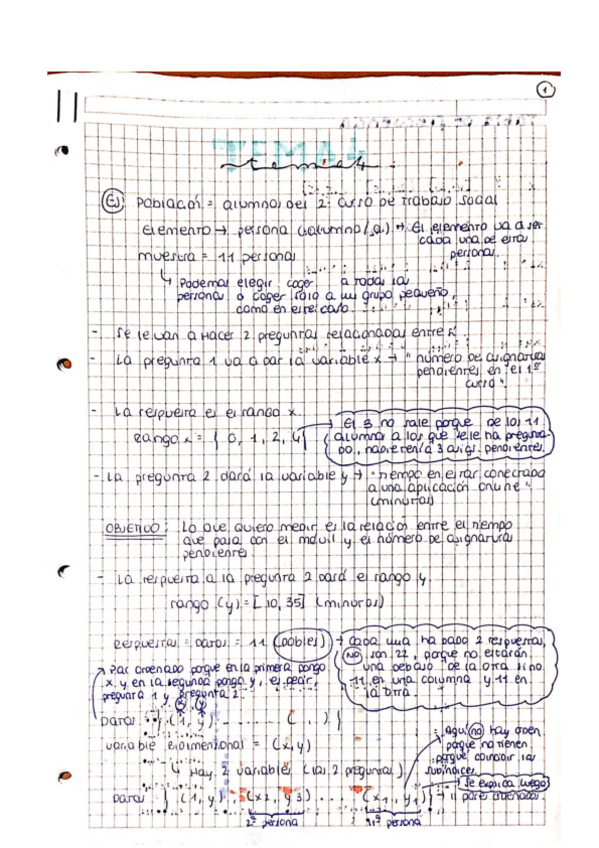 1
TEMA 4
tema 4.
Ej Población = alumnos del 2º curso de trabajo social
Elemento → persona (alumno/a) → El elemento va a ser
cada una de estas
personas.
muestra = 11 personas
↳ Podemos elegir coger a todas las
personas o coger solo a un grupo pequeño,
como en este caso
- Se le van a hacer 2 preguntas relacionadas entre sí
- La pregunta 1 va a dar la variable x → "número de asignaturas
pendientes en el 1º
curso".
- La respuesta es el rango x.
Rango x = { 0, 1, 2, 4 }
El 3 no sale porque de los 11
alumnos a los que se le ha pregunta-
do, nadie tenía 3 asig. pendientes.
- La pregunta 2 dará la variable y → "tiempo en estar conectado
a una aplicación online"
(minutos)
OBJETIVO: Lo que quiero medir es la relación entre el tiempo
que pasa con el móvil y el número de asignaturas
pendientes.
- La respuesta a la pregunta 2 dará el rango y
rango (y) = [10, 35] (minutos)
Respuestas = datos = 11 (dobles)
→ Cada una ha dado 2 respuestas,
NO son 22, porque no estarán
una debajo de la otra sino
11 en una columna y 11 en
la otra
→ Par ordenado porque en la primera pongo
x, y en la segunda pongo y, es decir,
pregunta 1 y pregunta 2.
x y
datos { (1, y) ........ ( , ) }
variable bidimensional = (x, y)
↳ Hay 2 variables (las 2 preguntas)
Aquí no hay orden
porque no tienen
porque coincidir los
subíndices
datos { (1, y) , (x2, y3) .... (x1, y1) }
Se explica luego
pares ordenados
2ª persona
11ª persona